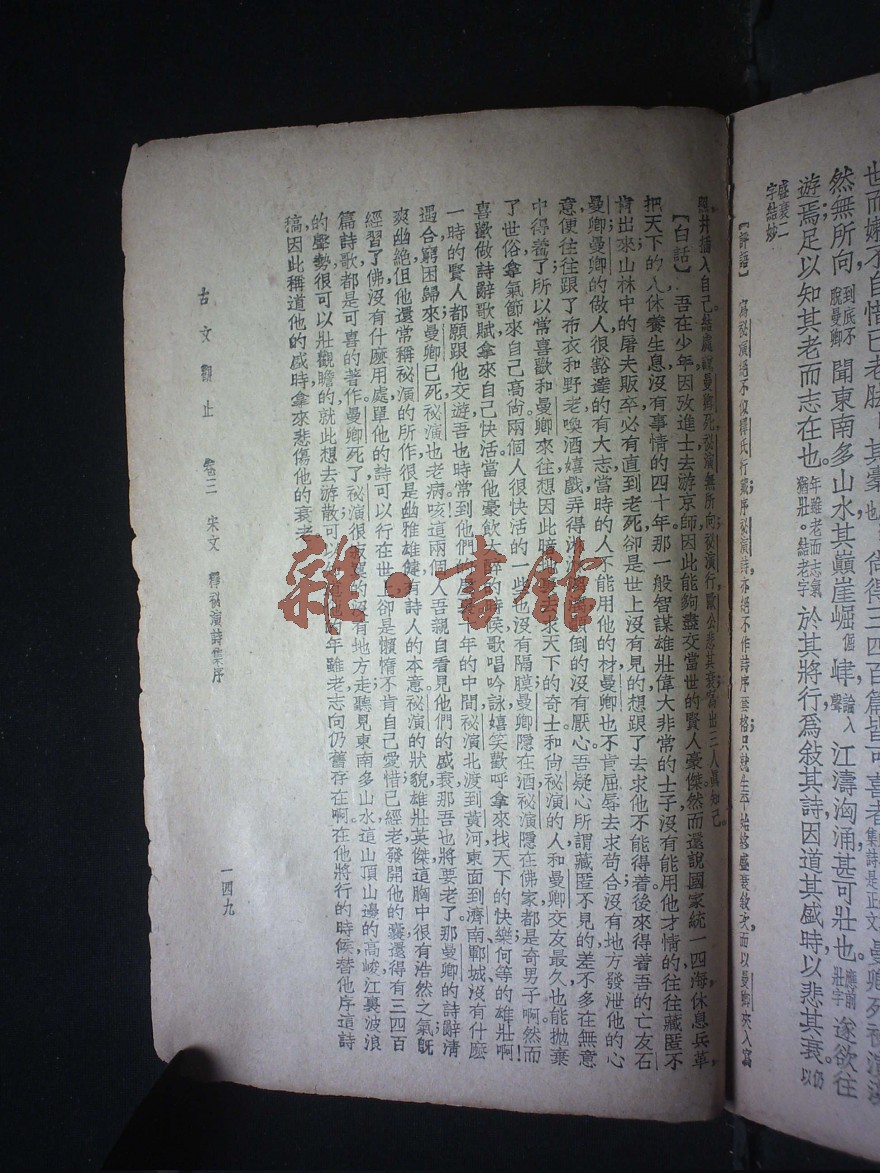 世而嬾不自惜已老胠其橐尚得三四百篇皆可喜者曼卿死祕演漠
然無所向到底不脫曼卿聞東南多山水其巔崖崛倔峍論入聲江濤洶涌甚可壯也應前壯字遂欲往
遊焉足以知其老而志在也年雖老而志氣猶壯。結老字於其將行爲敍其詩因道其盛時以悲其衰。仍以
盛衰二
字結妙
【評語】寫祕演絕不似釋氏行藏序祕演詩亦絕不作詩序套格只就生平始終盛衰敍次而以曼卿夾入寫
照并插入自己結處說曼卿死祕演無所向祕演行歐公悲其衰寫出三人眞知己。
【白話】吾在少年因攷進士去游京師因此能夠盡交當世的賢人豪傑然而還說國家統一四海休息兵革
把天下的人休養生息沒有事情的四十年那一般智謀雄壯偉大非常的士子沒有能用他才情的往往藏匿不
肯出來山林中的屠夫販卒必有直到老死卻是世上沒有見的想跟了去求他不能得着後來得着吾的亡友石
曼卿曼卿的做人很豁達的有大志當時的人不能用他的材曼卿也不肯屈辱去求苟合沒有地方發泄他的心
意便往往跟了布衣和野老喚酒嬉戲弄得淋顛倒的沒有厭心吾疑心所謂藏匿不見的差不多在無意
中得着了所以常喜歡和曼卿來往想因此暗去求天下的奇士和尙祕演的人和曼卿交友最久也能拋棄
了世俗拿氣節來自己高尙兩個人很快活的一些也沒有隔膜曼卿隱在酒祕演隱在佛家都是奇男子啊然而
喜歡做詩辭歌賦拿來自己快活當他豪飲大醉的時候歌唱吟詠嬉笑歡呼拿來找天下的快樂何等的雄壯啊！
一時的賢人都願跟他交遊吾也時常到他們年的中間祕演北渡到黃河東面到濟南鄆城沒有什麼
遇合窮困歸來曼卿已死祕演也老病咳這兩個人吾親自看見他們的盛衰那吾也將要老了那曼卿的詩辭清
爽幽絕但他還常稱祕演的所作很是幽雅雄健有詩人的本意祕演的狀貌雄壯英傑這胸中很有浩然之氣旣
經習了佛沒有什麼用處單他的詩可以行在世上卻是懶惰不肯自己愛惜已經老發開他的囊還得有三四百
篇詩歌都是可喜的著作曼卿死了祕演很寂寞的沒有地方走聽見東南多山水這山頂山邊的高峻江裏波浪
的聲勢很可以壯觀瞻的就此想去游散可以他的年雖老志向仍舊存在啊在他將行的時候替他序這詩
稿因此稱道他的盛時拿來悲傷他的衰老
古文觀止 卷三 宋文 釋祕演詩集序 一四九
雜·書館